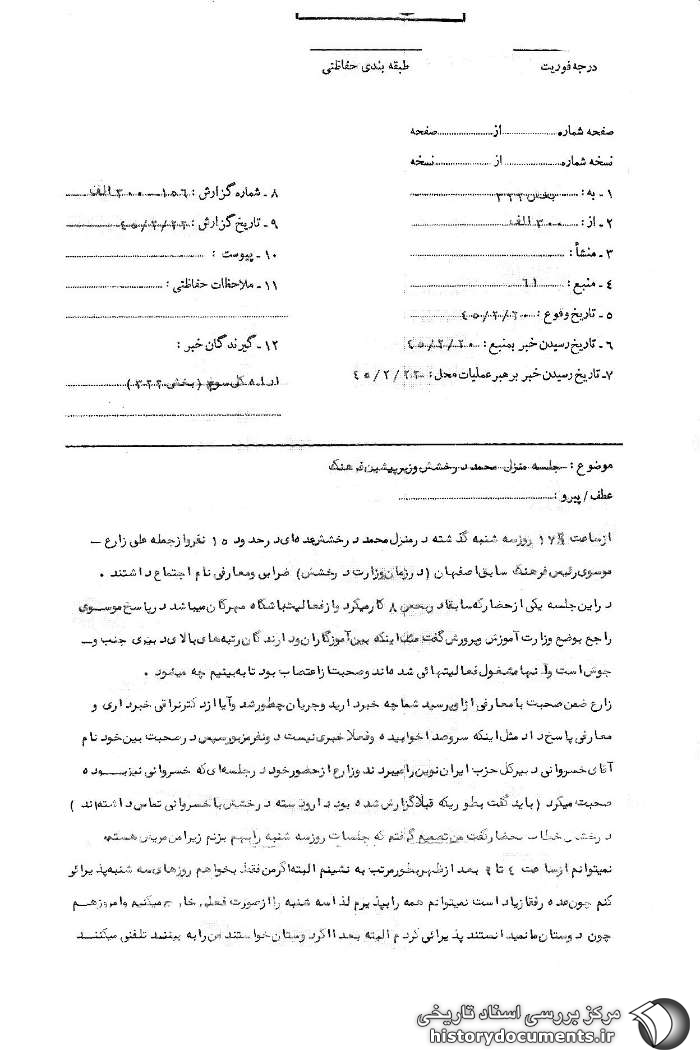 درجه فوریت
طبقه بندی حفاظتی
صفحه شماره ............ از ............ صفحه
نسخه شماره ............ از ............ نسخه
۱ ـ به : بخش ۳۳۳
۲ ـ از : ۳۰۰ الف
۳ ـ منشأ :
۴ ـ منبع :
۵ ـ تاریخ وقوع : ۴۵/۲/۲۰
۶ ـ تاریخ رسیدن خبر بمنبع : ۴۵/۲/۲۰
۷ ـ تاریخ رسیدن خبر برهبر عملیات محل : ۴۵/۲/۲۲
۸ ـ شماره گزارش : ۱۵۶ ـ ۳۰۰ الف
۹ ـ تاریخ گزارش :
۱۰ ـ پیوست :
۱۱ ـ ملاحظات حفاظتی :
۱۲ ـ گیرندگان خبر :
اداره کل سوم (بخش ۳۳۳)
موضوع : جلسه منزل محمد درخشش وزیر پیشین فرهنگ
عطف / پیرو :
از ساعت ۱۷ روز سه شنبه گذشته در منزل محمد درخشش عده‌ای در حدود ۱۵ نفر و از جمله علی زارع ـ
موسوی رئیس فرهنگ سابق اصفهان (در زمان وزارت درخشش) ضرابی و معارفی نام اجتماع داشتند .
در این جلسه یکی از حضار که سابقا در بخش ۸ کار میکرد و از فعالین باشگاه مهرگان میباشد در پاسخ موسوی
راجع بوضع وزارت آموزش و پرورش گفت مثل اینکه بین آموزگاران و دارندگان رتبه‌های بالای دبیری جنب و ـ
جوش است و آنها مشغول فعالیتهائی شده‌اند و صحبت از اعتصاب بود تا به بینیم چه میشود .
زارع ضمن صحبت با معارفی از او پرسید شما چه خبر دارید و جریان چطور شد و آیا از دکتر نراقی خبر داری و
معارفی پاسخ داد مثل اینکه سر و صدا خوابیده و فعلا خبری نیست دو نفر مزبور سپس در صحبت بین خود نام
آقای خسروانی دبیر کل حزب ایران نوین را میبردند و زارع از حضور خود در جلسه‌ای که خسروانی نیز بوده
صحبت میکرد ( باید گفت بطوریکه قبلا گزارش شده بود دارودسته درخشش با خسروانی تماس داشته‌اند )
درخشش خطاب بحضار گفت من تصمیم گرفتم که جلسات روز سه شنبه را بهم بزنم زیرا من مریض هستم
نمیتوانم از ساعت ۴ تا ۹ بعد از ظهر بطور مرتب به نشینم البته اگر من فقط بخواهم روزهای سه شنبه پذیرائی
کنم چون عده رفقا زیاد است نمیتوانم همه را بپذیرم لذا سه شنبه را از صورت فعلی خارج میکنیم و امروز هم
چون دوستان ما نمیدانستند پذیرائی کردم البته بعد اگر دوستان خواستند من را به بینند تلفنی میکنند
مرکز بررسی اسناد تاریخی
historydocuments.ir